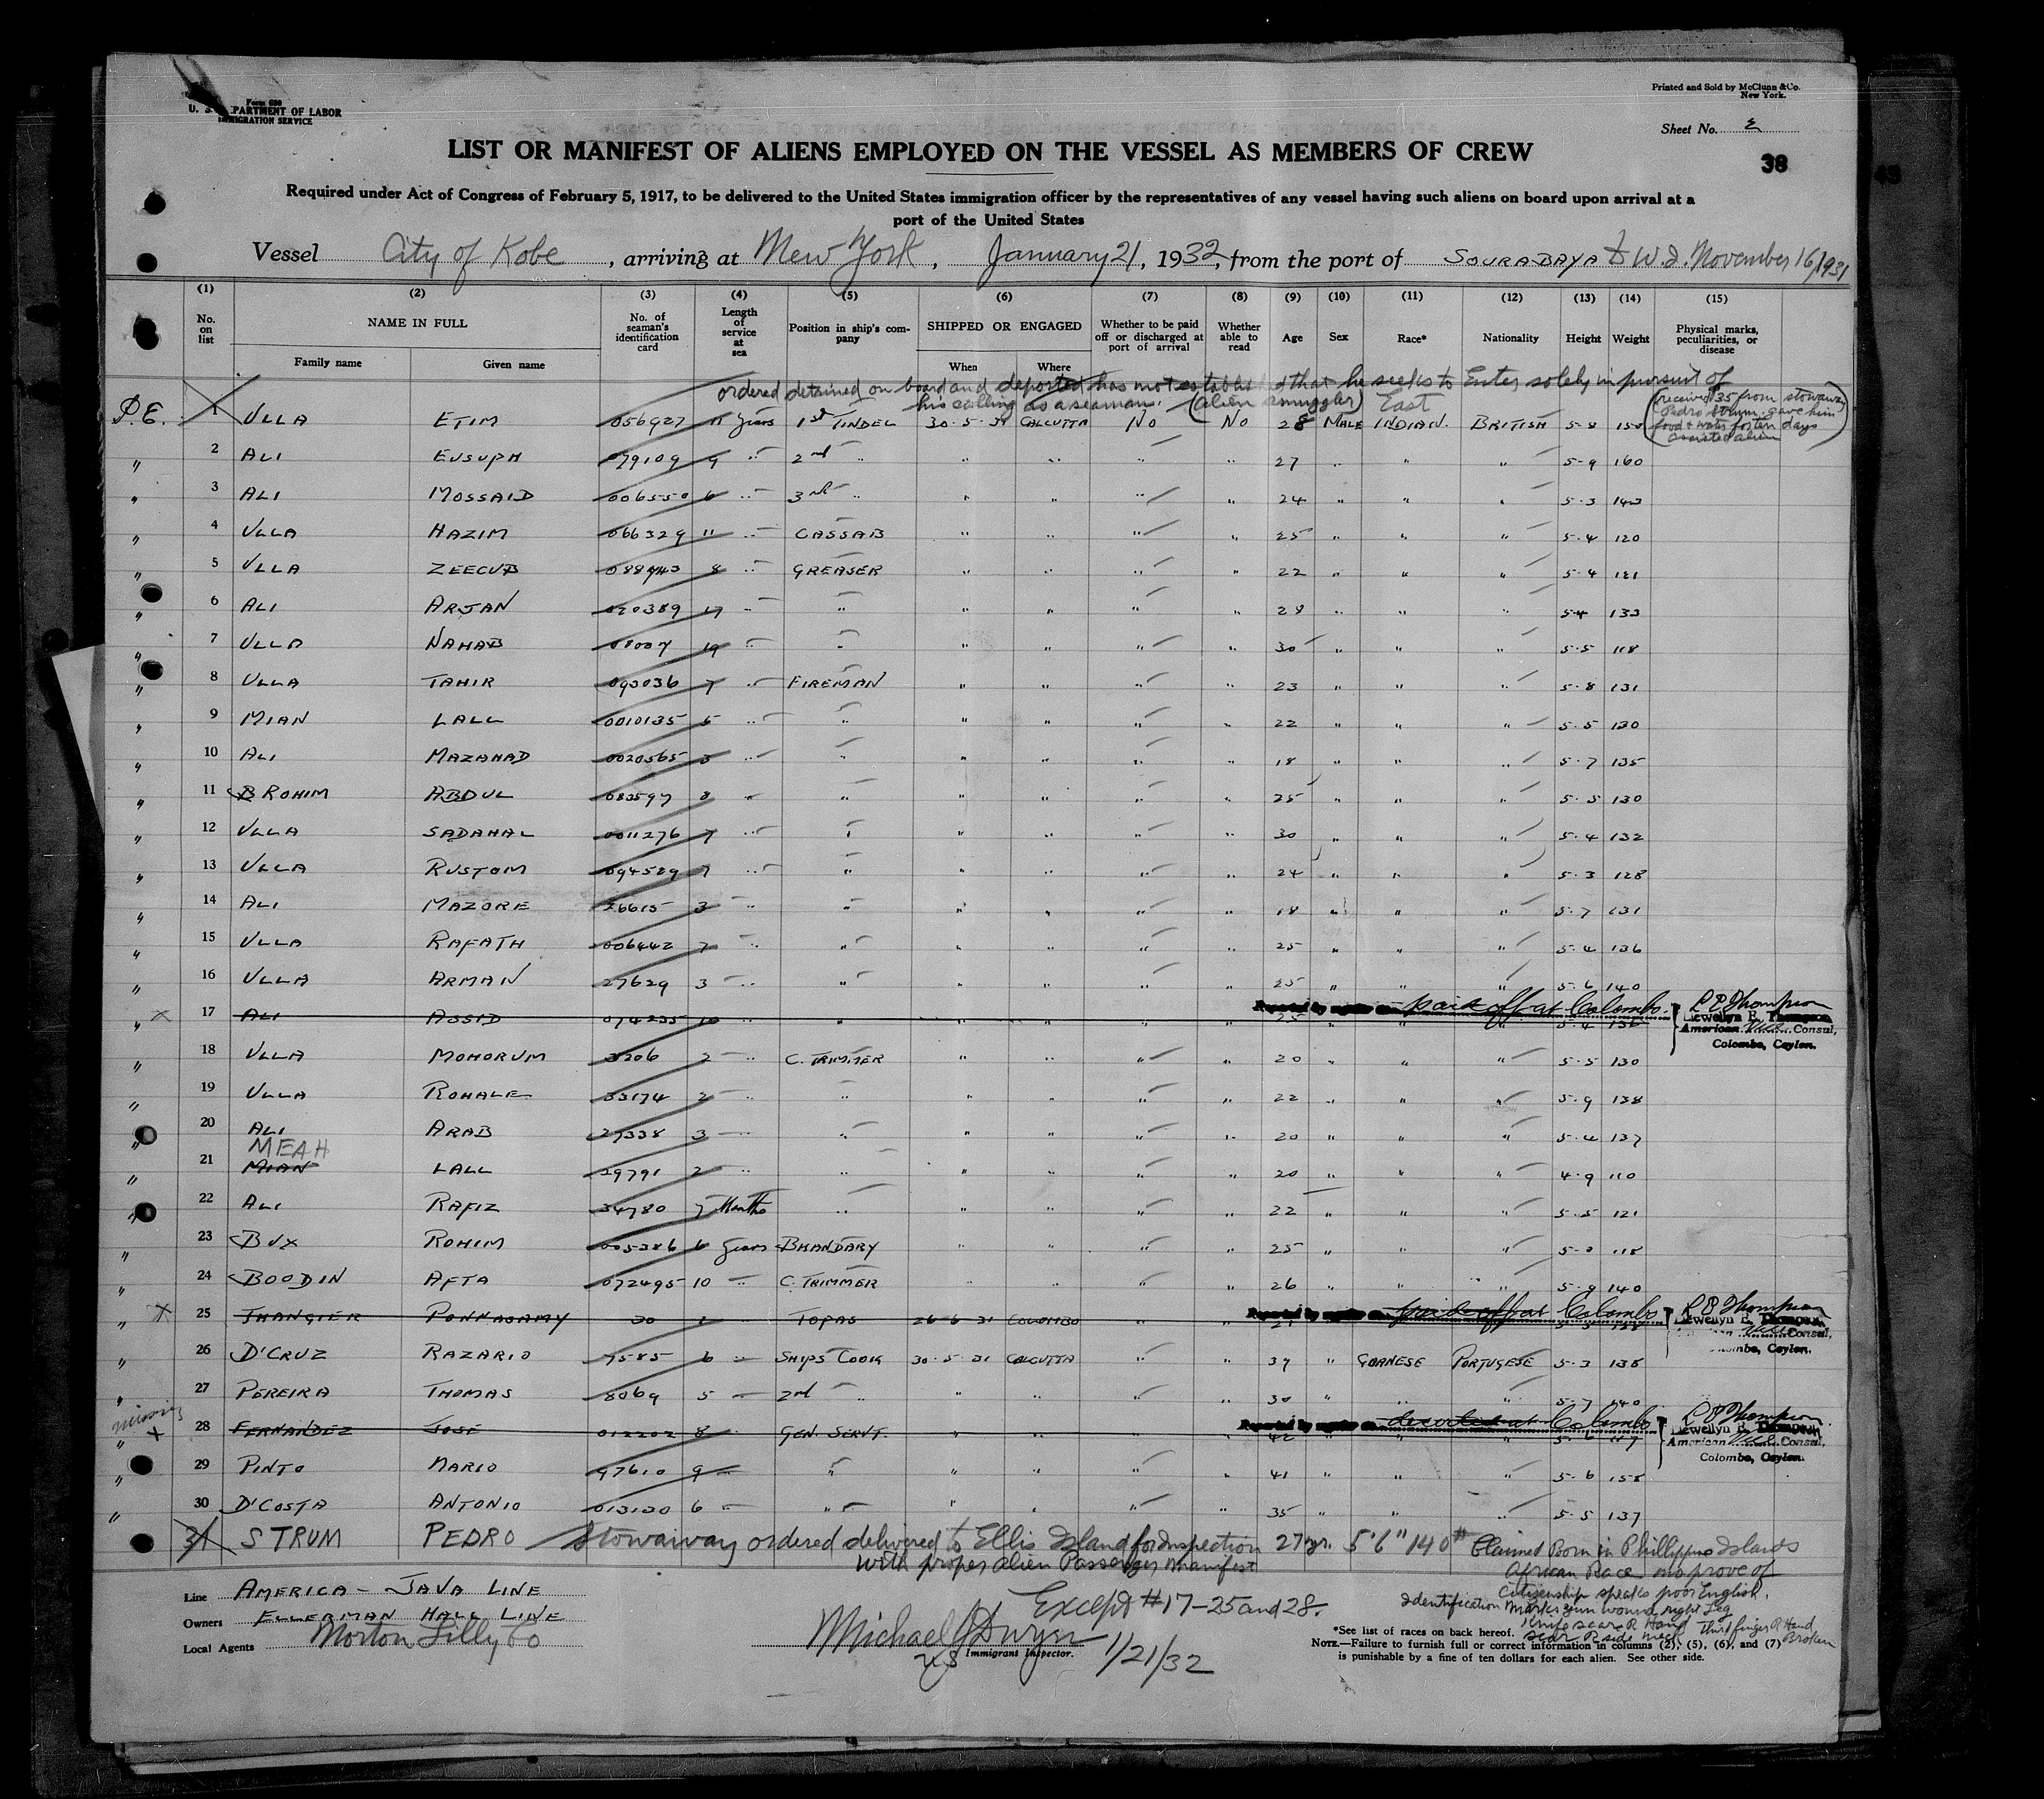 Form 680
U. S. DEPARTMENT OF LABOR
IMMIGRATION SERVICE
Printed and Sold by McClunn & Co.
New York.
Sheet No. 2
38
LIST OR MANIFEST OF ALIENS EMPLOYED ON THE VESSEL AS MEMBERS OF CREW
Required under Act of Congress of February 5, 1917, to be delivered to the United States immigration officer by the representatives of any vessel having such aliens on board upon arrival at a
port of the United States
Vessel City of Kobe, arriving at New York, January 21, 1932, from the port of SOURABAYA D.W.I. November 16/1931
(1) (2) (3) (4) (5) (6) (7) (8) (9) (10) (11) (12) (13) (14) (15)
No. on list NAME IN FULL Family name Given name No. of seaman's identification card Length of service at sea Position in ship's company SHIPPED OR ENGAGED When Where Whether to be paid off or discharged at port of arrival Whether able to read Age Sex Race* Nationality Height Weight Physical marks, peculiarities, or disease
ordered detained on board and deported has not established that he seeks to Enter solely in pursuit of
his calling as a seaman. (alien smuggler) East
(received $35 from stowaway Pedro Strum. gave him food & water for ten days assisted alien)
P.E. 1 ULLA ETIM 056927 11 years 1st TINDEL 30-5-31 CALCUTTA No No 28 MALE INDIAN. BRITISH 5-8 150
" 2 ALI EUSUPH 079109 9 " 2nd " " " " " 27 " " " 5-9 160
" 3 ALI MOSSAID 006550 6 " 3rd " " " " " 24 " " " 5-3 143
" 4 ULLA HAZIM 066329 11 " CASSAB " " " " 25 " " " 5-4 120
" 5 ULLA ZEECUB 088943 8 " GREASER " " " " 22 " " " 5-4 121
" 6 ALI ARJAN 020389 17 " " " " " " 28 " " " 5-4 133
" 7 ULLA NAHAB 08007 19 " " " " " " 30 " " " 5-5 118
" 8 ULLA TAHIR 093036 7 " FIREMAN " " " " 23 " " " 5-8 131
" 9 MIAN LALL 0010135 5 " " " " " " 22 " " " 5-5 130
" 10 ALI MAZAHAD 0020565 3 " " " " " " 18 " " " 5-7 135
" 11 BROHIM ABDUL 083597 8 " " " " " " 25 " " " 5-5 130
" 12 ULLA SADAHAL 0011276 7 " " " " " " 30 " " " 5-4 132
" 13 ULLA RUSTOM 094529 7 " " " " " " 24 " " " 5-3 128
" 14 ALI MAZORE 26615 3 " " " " " " 18 " " " 5-7 131
" 15 ULLA RAFATH 006442 7 " " " " " " 25 " " " 5-4 136
" 16 ULLA ARMAN 27629 3 " " " " " " 25 " " " 5-6 140
" x 17 ALI ASSID 074235 10 " " " " " 25 " " " 5-4 136
paid off at Colombo. L E Thompson Llewellyn E. Thompson, American Vice Consul, Colombo, Ceylon.
" 18 ULLA MOHORUM 3206 2 " C. TRIMMER " " " " 20 " " " 5-5 130
" 19 ULLA ROHALE 33174 2 " " " " " " 22 " " " 5-9 138
" 20 ALI ARAB 27338 3 " " " " " " 20 " " " 5-4 137
MEAH
" 21 MIAN LALL 29791 2 " " " " " " 20 " " " 4-9 110
" 22 ALI RAFIZ 34780 7 Months " " " " " 22 " " " 5-5 121
" 23 BUX ROHIM 005386 6 years BHANDARY " " " " 25 " " " 5-0 118
" 24 BOODIN AFTA 072495 10 " C. TRIMMER " " " " 26 " " " 5-9 140
" x 25 THANGIER PONNASAMY 30 1 " TOPAS 26-6-31 COLOMBO " " 21
paid off at Colombo L E Thompson Llewellyn E. Thompson, American Vice Consul, Colombo, Ceylon.
" 26 D'CRUZ RAZARIO 7585 6 " SHIPS COOK 30-5-31 CALCUTTA " " 37 " GOANESE PORTUGESE 5-3 138
" 27 PEREIRA THOMAS 8069 5 " 2nd " " " " " 30 " " " 5-7 140
missing
" x 28 FERNANDEZ JOSE 012202 8 " GEN. SERVT. " " " " 42 " " " 5-6 117
deserted at Colombo L E Thompson Llewellyn E. Thompson, American Vice Consul, Colombo, Ceylon.
" 29 PINTO MARIO 97610 9 " " " " " " 41 " " " 5-6 158
" 30 D'COSTA ANTONIO 013130 6 " " " " " " 35 " " " 5-5 137
31 STRUM PEDRO Stowaway ordered delivered to Ellis Island for Inspection 27 yr. 5'6" 140# Claimed Born in Phillippine Islands
with proper alien Passenger Manifest African Race no prove of
Citizenship speaks poor English.
Identification Marks gun wound right leg
Knife scare R Hand Third finger R Hand Broken
scar R side neck
Line AMERICA - JAVA LINE
Owners ELLERMAN HALL LINE
Local Agents Norton Lilly Co
Except #17-25 and 28.
Michael J Dwyer
US Immigrant Inspector. 1/21/32
*See list of races on back hereof.
NOTE.—Failure to furnish full or correct information in columns (2), (5), (6), and (7)
is punishable by a fine of ten dollars for each alien. See other side.